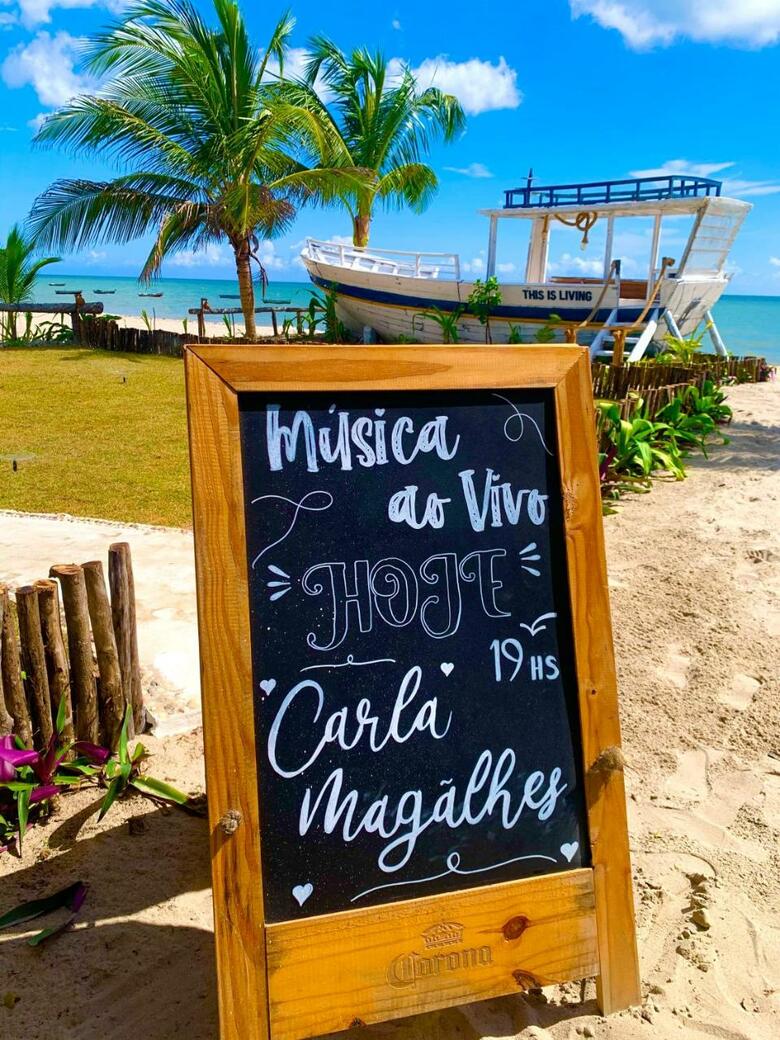 THIS IS LIVING
Música
ao Vivo
HOJE
19 HS
Carla
Magãlhes
Corona